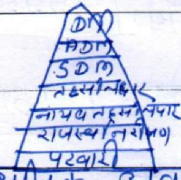 DM
ADM
SDM
तहसीलदार
नायब तहसीलदार
राजस्व निरीक्षण
पटवारी